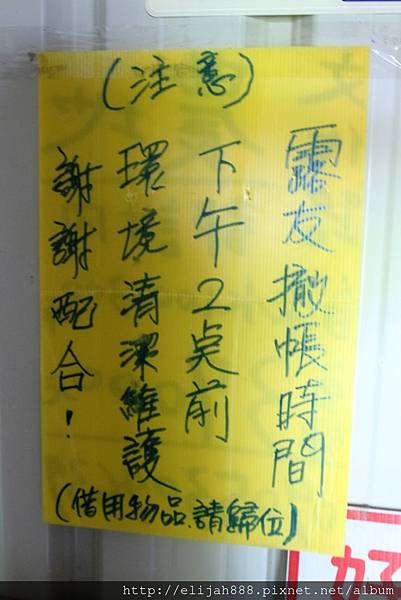 (注意)
露友撤帳時間
下午2点前
環境清潔維護
謝謝配合!
(借用物品.請歸位)
好
http://elijah888.pixnet.net/album